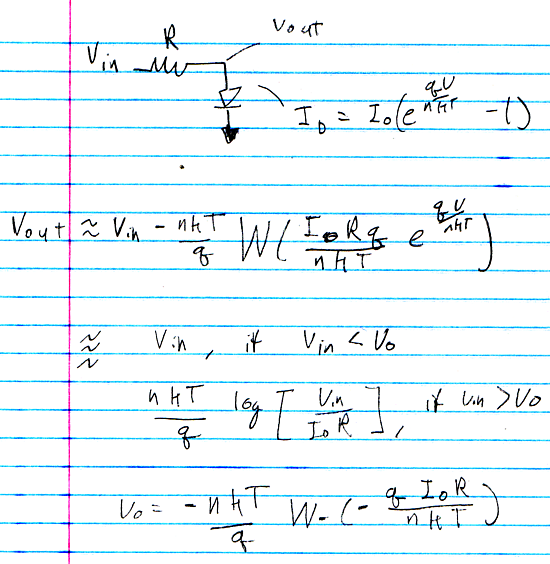 Vout
R
Vin
I_D = I_0(e^{qV/nkT} - 1)
Vout ≈ Vin - nkT/q W( I_0 R q / nkT e^{qV/nkT} )
≈ Vin, if Vin < V_0
nkT/q log [ Vin / I_0 R ], if Vin > V_0
V_0 = - nkT/q W_-( - q I_0 R / nkT )